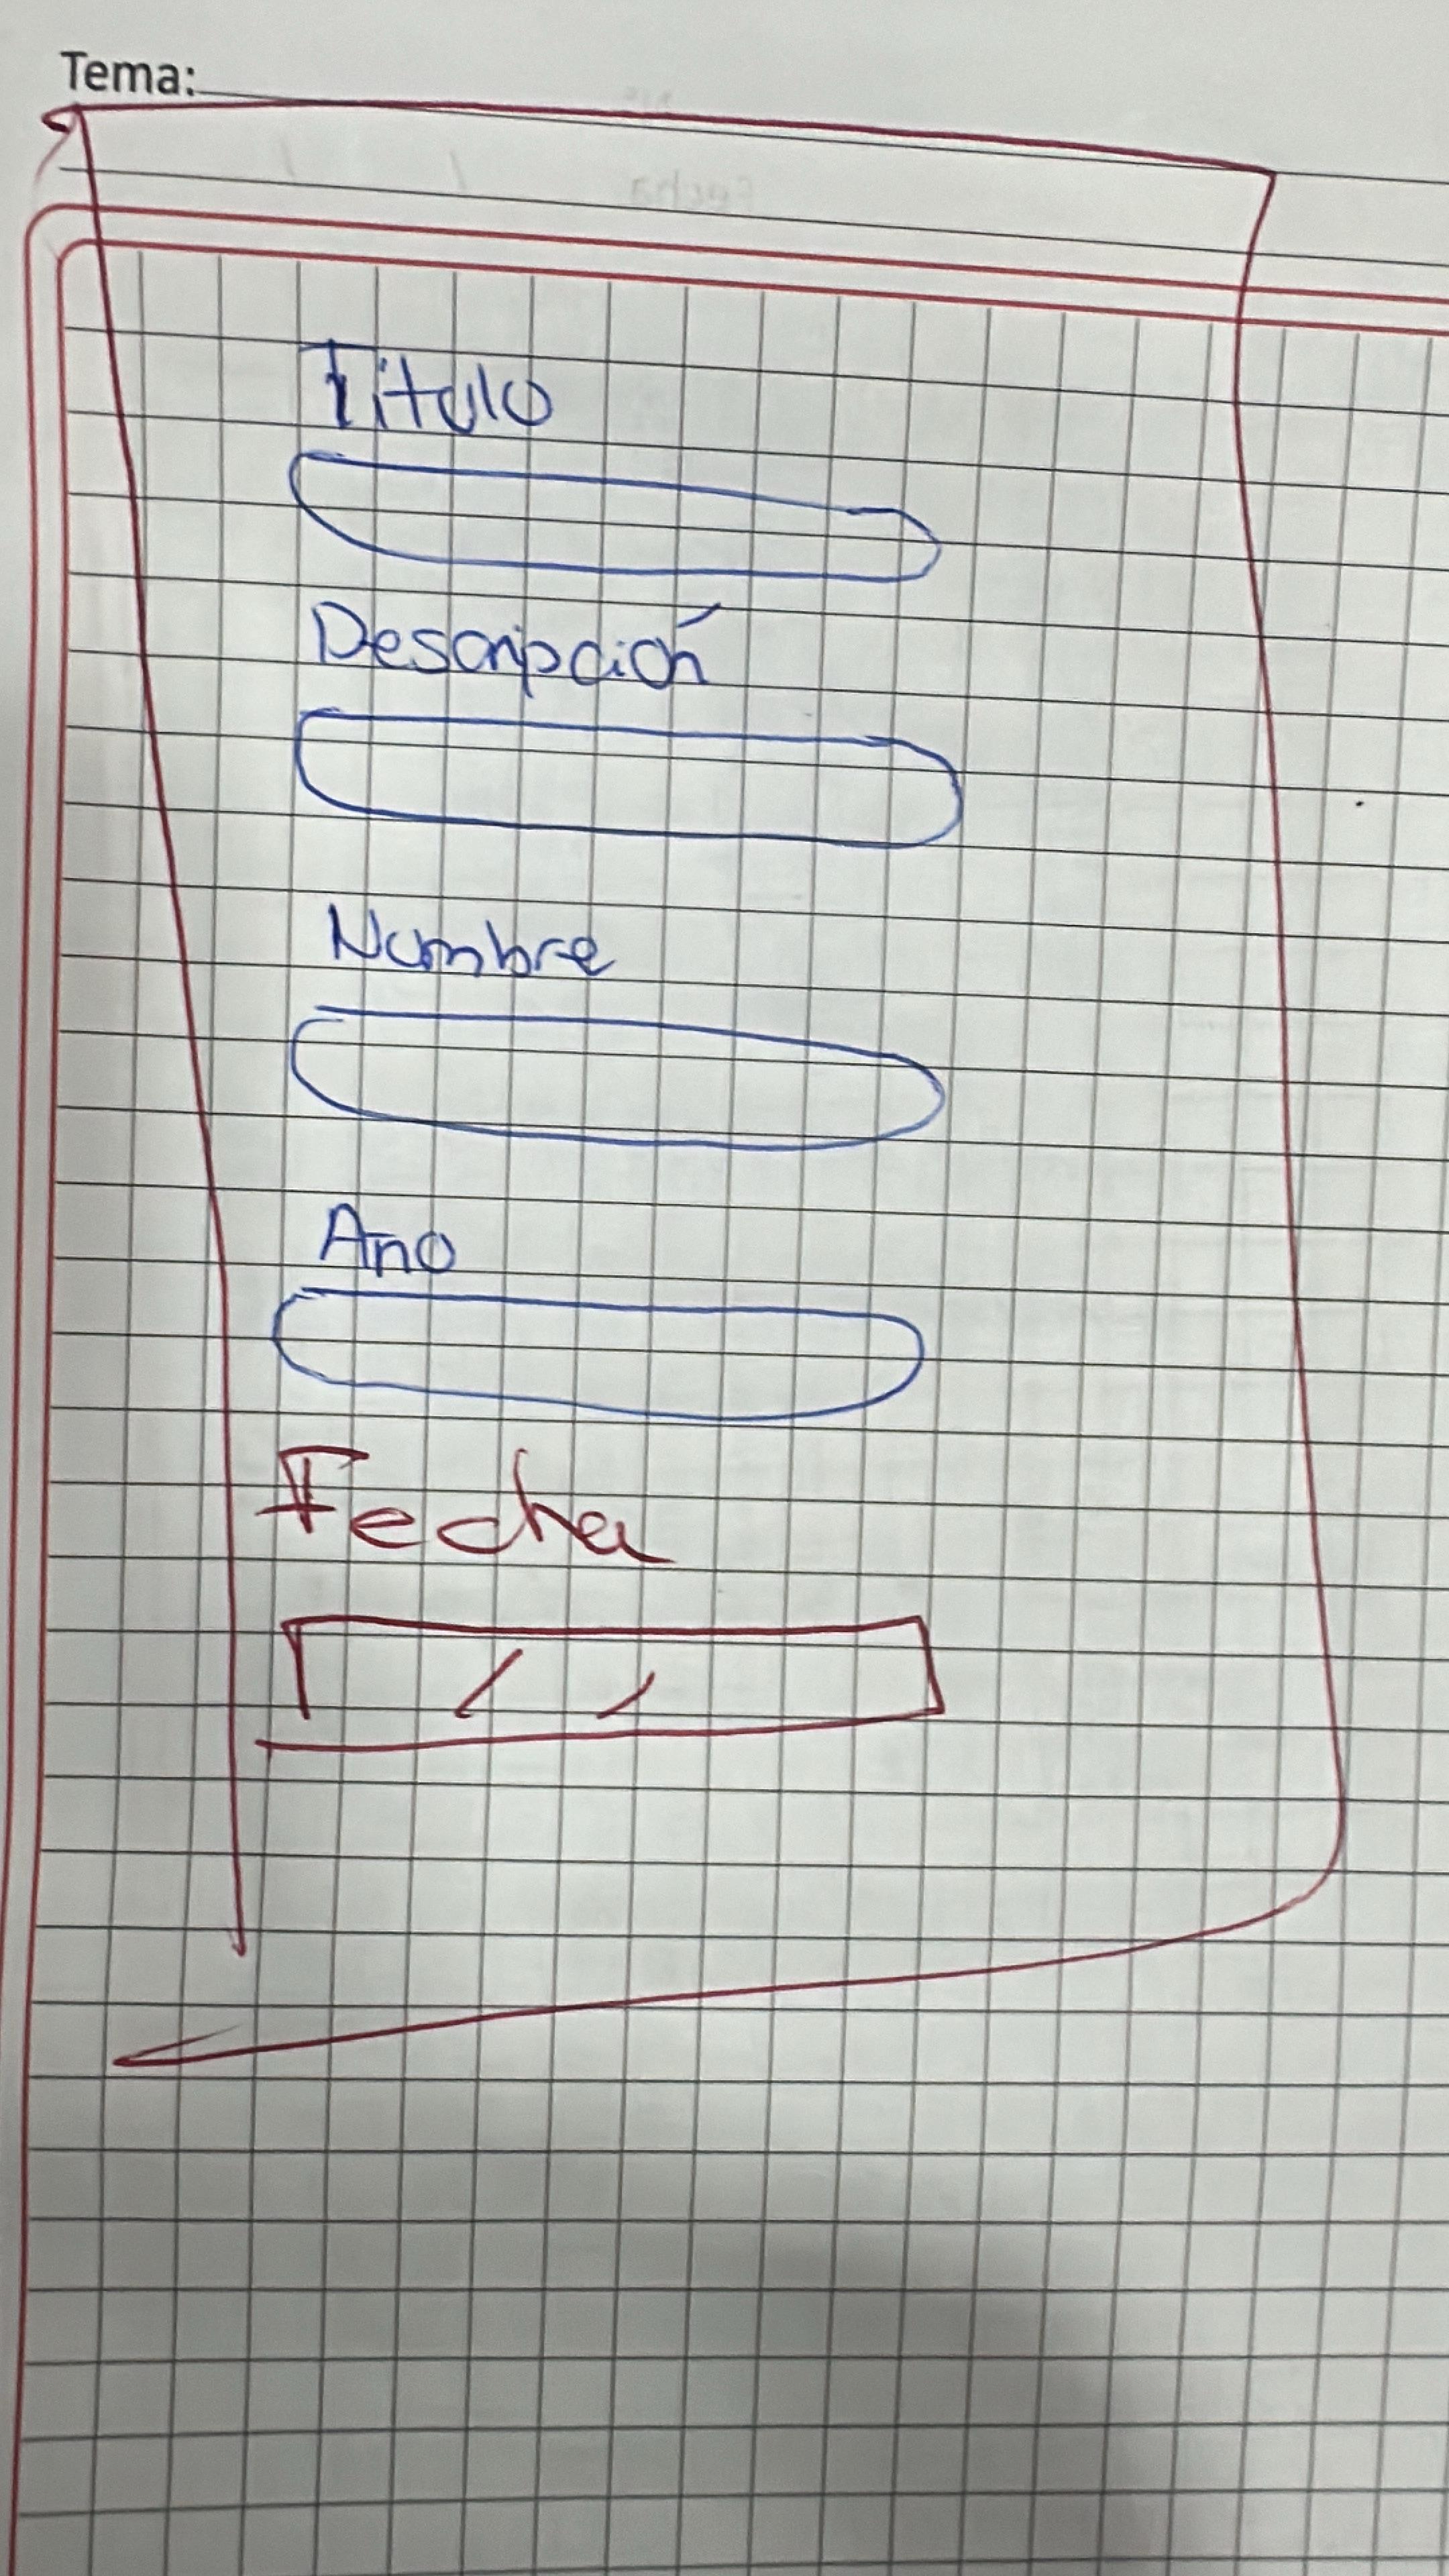 Tema:
Titulo
Descripción
Nombre
Ano
Fecha
/ /